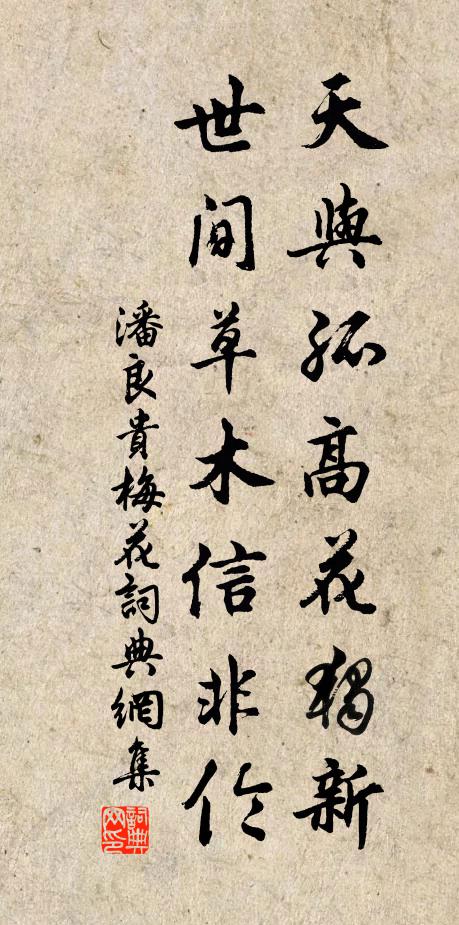 天與孤高花獨新
世間草木信非伦
潘良貴梅花詞典網集
詞典
网印